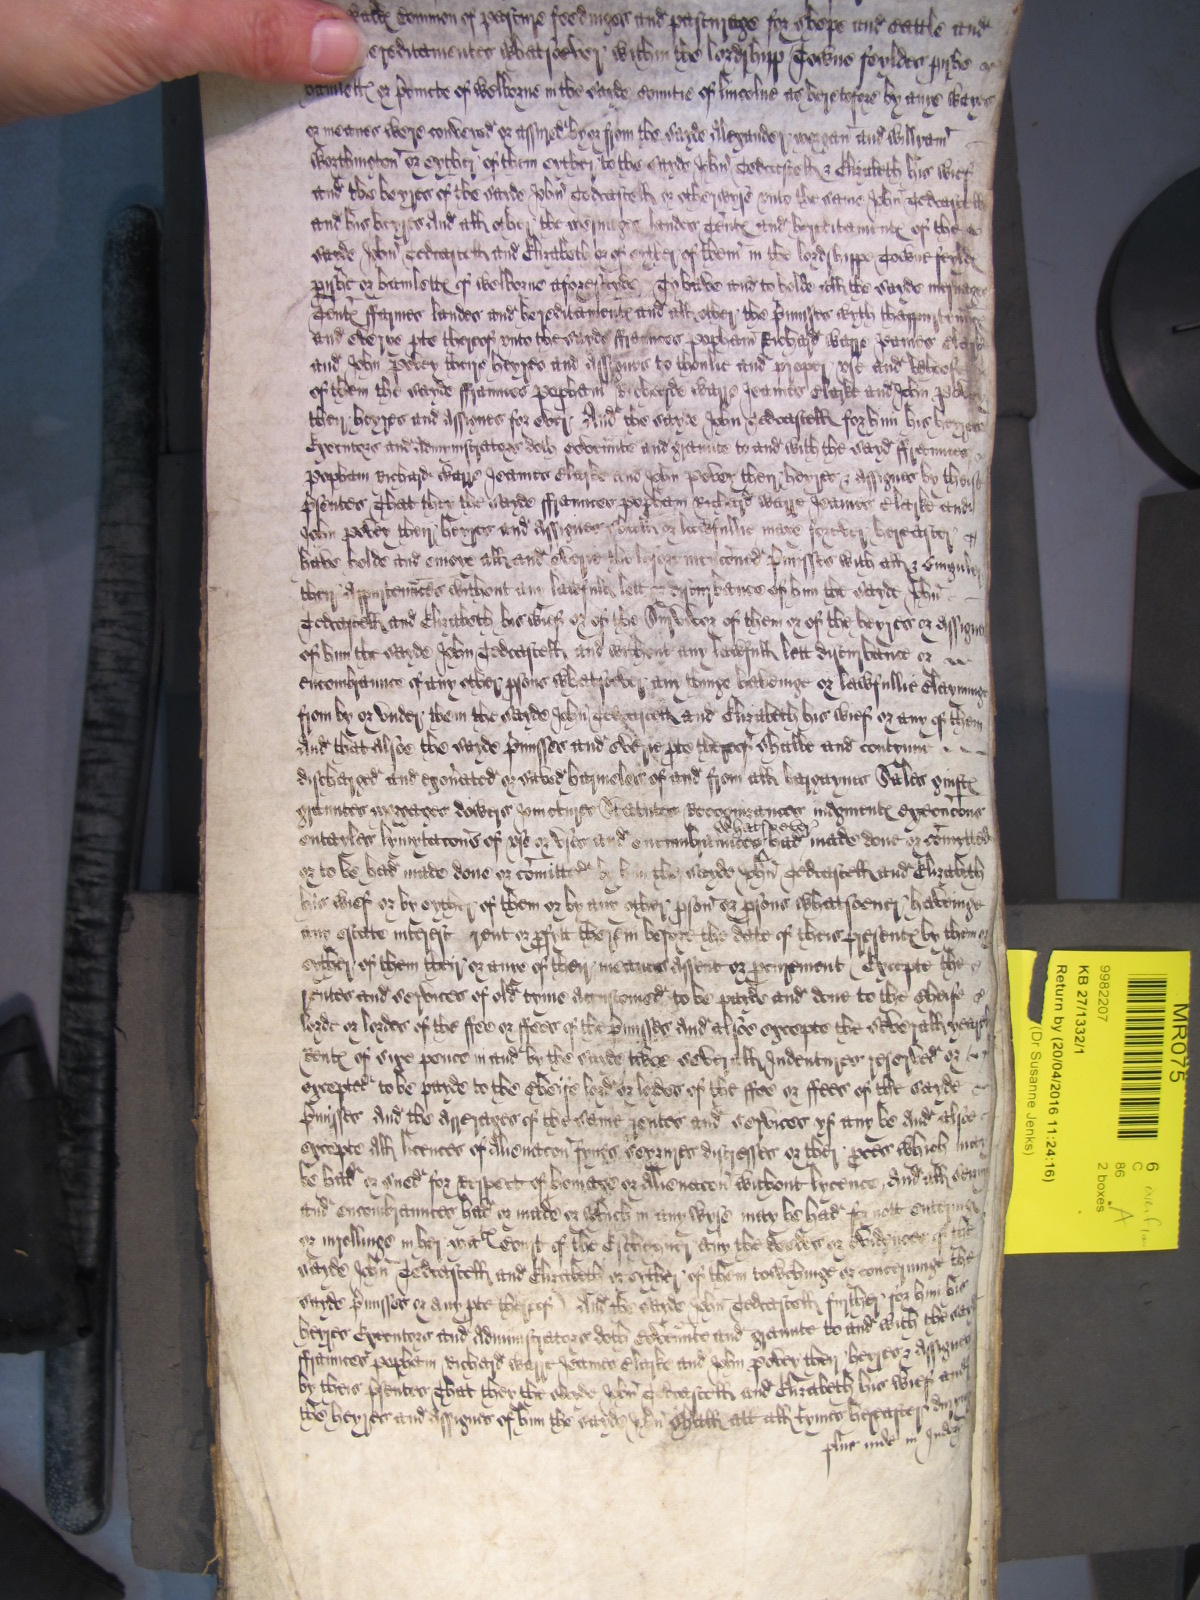 walk Common of pasture feedinges and pasturage for shepe and Cattle and
hereditamentes whatsoever within the lordshipp Towne feyldes pishe
hamlett or pcincte of Welborne in the sayde Countie of lincolne as heretofore by anye wayes
or meanes were conveyed or assured by or from the sayde Alexander Morgan and William
Worthington or eyther of them eyther to the sayde John Tedcastell & Elizabeth his wief
and the heyres of the sayde John Tedcastell or otherwyse unto the same John Tedcastell
and his heyres And all other the mesuages landes Tentes and hereditamentes of the
sayde John Tedcastell and Elizabeth or of eyther of them in the lordshippe Towne feyldes
pishe or hamlett of Welborne aforesayde To have and to holde all the sayde mesuages
Tentes ffarmes landes and hereditamentes and all other the pmisses wyth thappurtenances
and everye pte thereof unto the sayde ffraunces Popham Richard Warre James Clarke
and John Povey theire heyres and Assignes to thonlie and proper use and behoofe
of them the sayde ffraunces Popham Richarde Warre Jeames Clarke and John Povey
their heyres and Assignes for ever And the sayde John Tedcastell for him his heyres
Executors and Administrators doth covennte and graunte to and with the sayd ffraunces
Popham Richard Warre Jeames Clarke and John Povey their heyres & Assignes by theise
psentes That they the sayde ffraunces Popham Richard Warre Jeames Clarke and
John Povey their heyres and Assignes shall or lawfullie maie forever hereafter
have holde and enioye all and everie the before mencioned pmisses with all & singuler
their Appurtennces without any lawfull lett or disturbance of him the sayde John
Tedcastell and Elizabeth his wief or of the Survivor of them or of the heyres or Assignes
of him the sayde John Tedcastell and without any lawfull lett disturbance or
encombrance of any other psons whatsoever any thinge havinge or lawfullie clayminge
from by or under them the sayde John Tedcastell and Elizabeth his wief or any of them
And that alsoe the sayde pmisses and everie pte thereof shalbe and contynue
discharged and exonated or saved harmeles of and from all bargaynes Sales giuftes
grauntes morgages dowers joinctures Statutes Recognizances iudgmentes execucons
entayles lymytacons of use or uses and encumbrances whatsoever had made done or comytted
or to be had made done or comitted by him the sayde John Tedcastell and Elizabeth
his wief or by eyther of them or by any other pson or psons whatsoever havinge
any estate interest rent or profitt therein before the date of theis presentes by them or
eyther of them their or anye of their meanes assent or procurement Excepte the
rentes and services of old tyme accustomed to be payde and done to the Cheife
lorde or lordes of the ffee or ffees of the pmisses And alsoe excepte the severall yearlie
Rentes of sixe pence in and by the sayde twoe severall Indentures reserved or
excepted to be payde to the Cheife lord or lordes of the ffee or ffees of the sayde
pmisses And the arrerages of the same rentes and services yf any be And alsoe
excepte all licences of Alienacon fynes seazures distresses or other pces which may
be had or sued for Respect of homage or Alienacon without lycence And all
and encombrances had or made or which in any wyse may be had for nott entringe
or inrollinge in her Matis Court of the Exchequer any the deedes or evidences of the
sayde John Tedcastell and Elizabeth or eyther of them towchinge or concerninge the
sayde pmisses or any pte thereof And the sayde John Tedcastell further for him his
heyres Executors and Administrators doth covennte and graunte to and with the sayd
ffraunces Popham Richard Warre Jeames Clarke and John Povey their heyres & Assignes
by theis psentes That they the sayde John Tedcastell and Elizabeth his wief and
the heyres and Assignes of him the sayde John shall att all tymes hereafter during
plus inde in
MR075
9982207
KB 27/1332/1
Return by (20/04/2016 11:24:16)
(Dr Susanne Jenks)
6
C
86
2 boxes
A